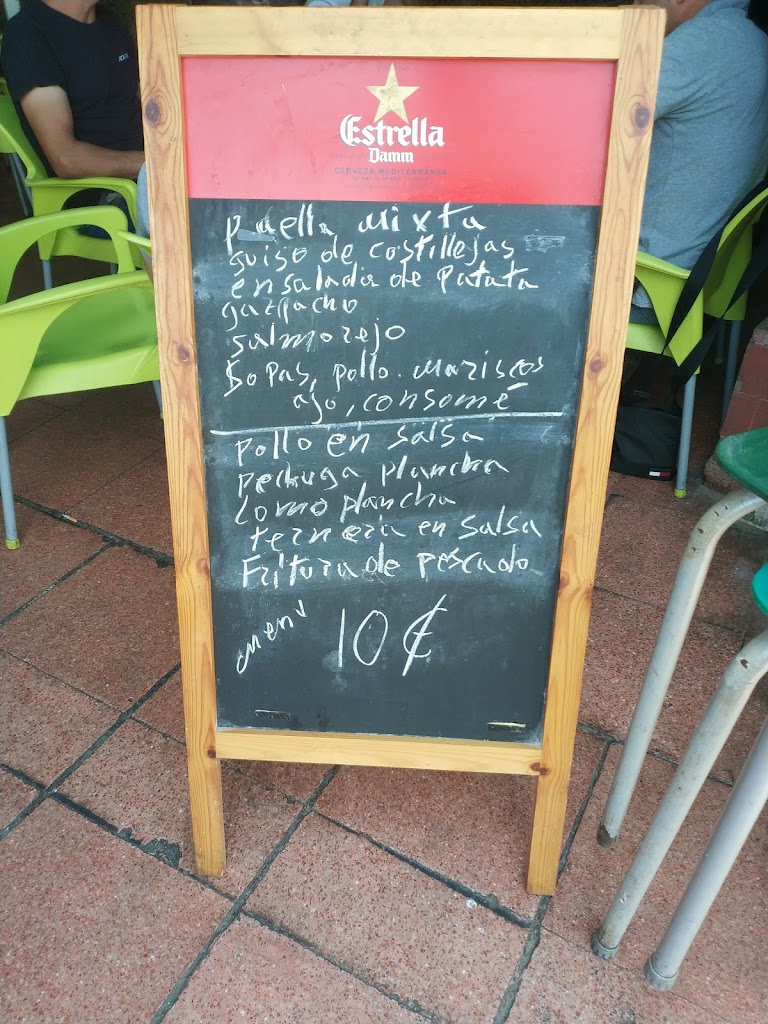 Estrella
Damm
CERVEZA MEDITERRÁNEA
paella Mixta
guiso de costillejas
ensalada de patata
gazpacho
salmorejo
Sopas, pollo. Mariscos
ajo, consomé
pollo en salsa
pechuga plancha
Lomo plancha
ternera en salsa
Fritura de pescado
menu 10 €